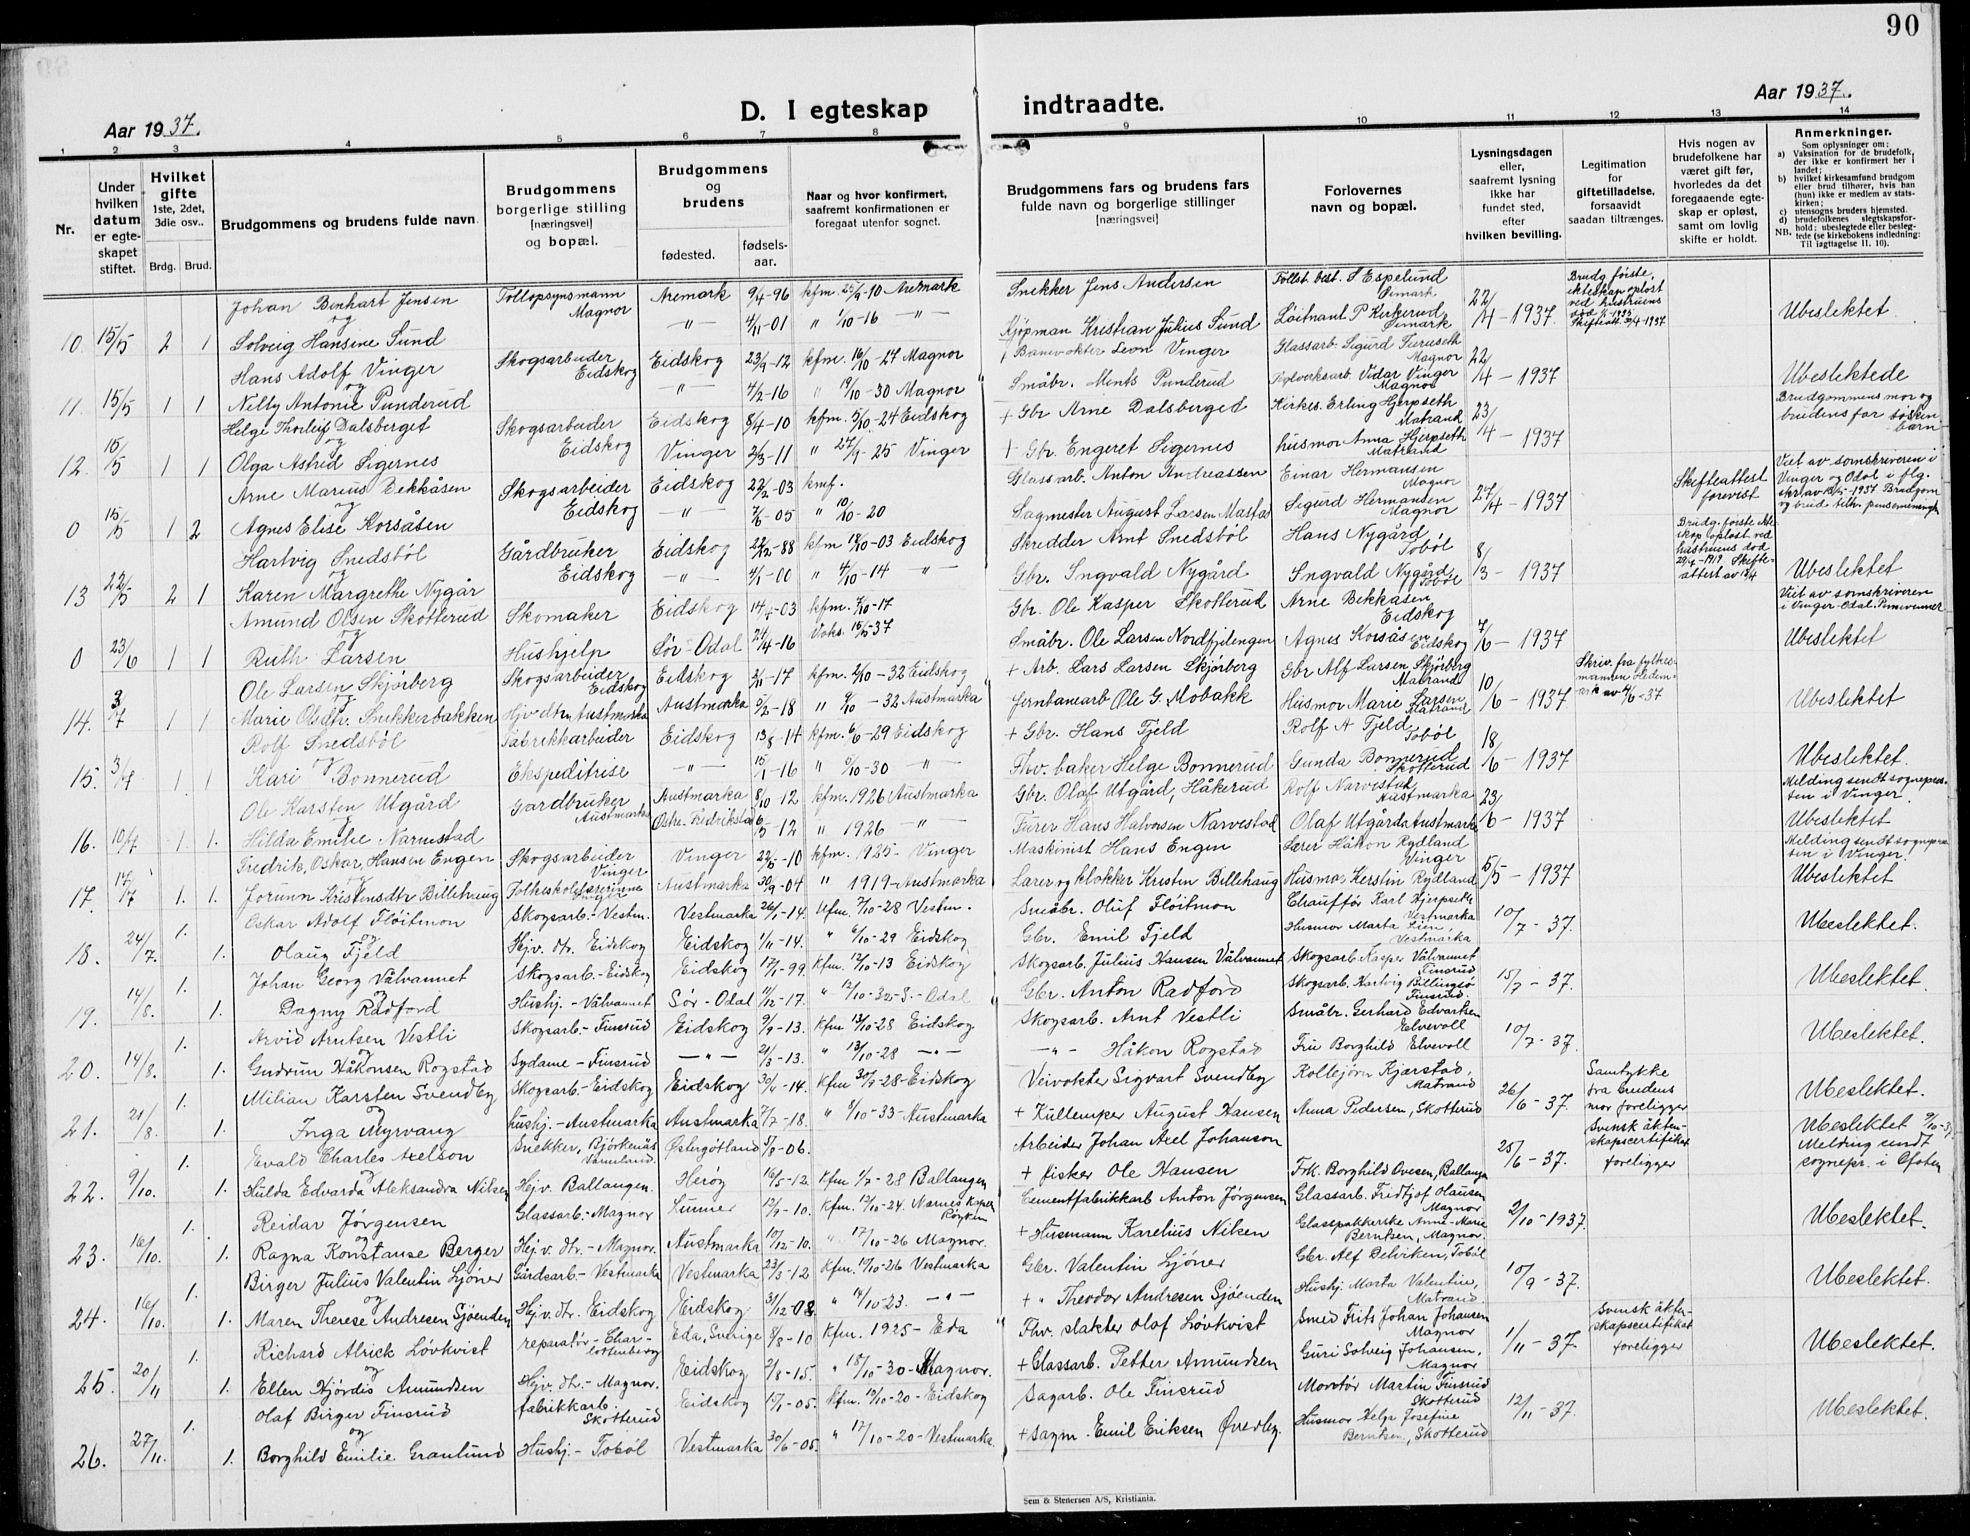 90
Aar 1937.
D. I egteskap indtraadte.
Aar 1937.
1 2 3 4 5 6 7 8 9 10 11 12 13 14
Nr.
Under hvilken datum er egteskapet stiftet.
Hvilket gifte 1ste, 2det, 3die osv..
Brdg. Brud.
Brudgommens og brudens fulde navn.
Brudgommens borgerlige stilling [næringsvei] og bopæl.
Brudgommens og brudens
fødested.
fødsels-aar.
Naar og hvor konfirmert, saafremt konfirmationen er foregaat utenfor sognet.
Brudgommens fars og brudens fars fulde navn og borgerlige stillinger [næringsvei]
Forlovernes navn og bopæl.
Lysningsdagen eller, saafremt lysning ikke har fundet sted, efter hvilken bevilling.
Legitimation for giftetilladelse, forsaavidt saadan tiltrænges.
Hvis nogen av brudefolkene har været gift før, hvorledes da det foregaaende egteskap er opløst, samt om lovlig skifte er holdt.
Anmerkninger.
Som oplysninger om:
a) Vaksination for de brudefolk, der ikke er konfirmert her i landet;
b) hvilket kirkesamfund brudgom eller brud tilhører, hvis han (hun) ikke er medlem av statskirken;
c) utensogns bruders hjemsted.
d) brudefolkenes slegtskapsforhold; ubeslegtede eller beslegtede (se kirkebokens indledning:
NB. Til iagttagelse II. 10).
Johan Benhart Jensen Tollopsynsmann Magnor Aremark 9/4-96 kfm. 25/9-10 Aremark Snekker Jens Andersen Tollst. best. S Espelund
og
10 15/5 2 1 Solveig Hansine Sund -"- 4/11-01 " 1/10-16 -"- Kjøpman Kristian Julius Sund Løitnant P Kirkerud 22/4-1937 Ubeslektet
Hans Adolf Vinger Skogsarbeider Eidskog Eidskog 23/9-12 kfm. 16/10-27 Magnor Banevokter Leon Vinger Magnor
og
11. 15/5 1 1 Nelly Antonie Punderud -"- 4/2-16 " 19/10-30 Magnor Småbr. Ments Punderud Vidar Vinger Magnor 22/4-1937 Ubeslektede
Helge Thorleif Dalsberget Skogsarbeider Eidskog Eidskog 8/4-10 kfm. 5/10-24 Eidskog + Gbr Arne Dalsberget Kirkes. Erling Hjerpseth Matrand Brudgommens mor og brudens far søskenbarn
og
12. 15/5 1 1 Olga Astrid Sigernes Vinger 2/3-11 " 27/9-25 Vinger + Gbr. Engeret Sigernes husmor Anna Hjerpseth Matrand 23/4-1937
Arne Marius Bekkåsen Skogsarbeider Eidskog Eidskog 22/2-03 Glassarb. Anton Andreassen Einar Hermansen Magnor Skifteattest forevist
og
0 15/5 1 2 Agnes Elise Korsåsen -"- 7/6-05 " 10/10-20 Sagmester August Larsen Sigurd Hermansen Magnor 27/4-1937
Hartvig Snedsbøl Gårdbruker Eidskog Eidskog 22/12-88 kfm 18/10-03 Eidskog Skredder Arnt Snedsbøl Hans Nygård Tobøl
og
13 22/5 2 1 Karen Margrethe Nygår -"- 4/1-00 " 4/10-14 -"- Gbr. Ingvald Nygård Ingvald Nygård Tobøl 8/3-1937 Ubeslektet
Amund Olsen Skotterud Skomaker Eidskog 14/4-03 kfm. 7/10-17 Gbr. Ole Kasper Skotterud Arne Bekkåsen Eidskog
og
0 23/6 1 1 Ruth Larsen Hushjelp Sør-Odal 24/4-16 Voks. 15/5-37 Småbr. Ole Larsen Nordfjelengen Agnes Korsåsen Eidskog 7/6-1937 Ubeslektet
Ole Larsen Skjørberg Skogsarbeider Eidskog Eidskog 2/11-17 kfm. 2/10-32 Eidskog + Arb. Lars Larsen Skjørberg Gbr Alf Larsen Skjørberg Matrand
og
14. 3/7 1 1 Marie Olsdtr. Snekkerbakken Hjv dtr. Austmarka Austmarka 5/2-18 " 9/10-32 Austmarka Jernbanearb Ole G. Mobakk Husmor Marie Larsen Matrand 10/6-1937 Ubeslektet
Rolf Snedsbøl Fabrikkarbeider Eidskog 13/8-14 kfm. 6/6-29 Eidskog + Gbr. Hans Fjeld Rolf A Fjeld Tobøl
og
15. 3/7 1 1 Kari Bonnerud Ekspeditrise -"- 15/1-16 " 5/10-30 -"- Fhv. baker Helge Bonnerud Gunda Bonnerud Skotterud 18/6-1937 Ubeslektet.
Ole Karsten Utgård Gardbruker Austmarka Austmarka 8/10-12 kfm. 1926 Austmarka Gbr. Olaf Utgård, Håkerud Rolf Narvestad Austmarka Melding sendt sognepresten i Vinger.
og
16. 10/7 1 1. Hilda Emilie Narvestad 6/5-12 " 1926 -"- Furer Hans Halvorsen Narvestad Olaf Utgård Austmarka 23/6-1937 Ubeslektet
Fredrik Oskar Hansen Engen Skogsarbeider Vinger Vinger 22/5-10 kfm. 1925- Vinger Maskinist Hans Engen Lærer Håkon Rydland Vinger Melding sendt sognepresten i Vinger
og
17. 17/7 1. 1. Jorunn Kristensdtr Billehaug Folkeskolelærerinne Vinger Austmarka 30/9-04 " 1919-Austmarka Lærer og klokker Kristen Billehaug Husmor Kerstin Rydland 5/5-1937 Ubeslektet
Oskar Adolf Fløitmon Skogsarb.-Vestm. Vestmarka 26/1-14. Kfm. 7/10-28 Vestm. Småbr. Oluf Fløitmon Chauffør Karl Hjerpseth Vestmarka
og
18. 24/7. 1. 1. Olaug Fjeld Hejv. dtr. Eidskog Eidskog 1/11-14. " 6/10-29 Eidskog Gbr. Emil Fjeld Husmor Marta Lien, Vestmarka 10/7-37. Ubeslektet.
Johan Georg Vålvannet Skogsarb.-Eidskog Eidskog 17/1-99 Kfm. 12/10-13 Eidskog Skogsarb. Julius Hansen Vålvannet Skogsarb Kasper Vålvannet Finsrud
og
19. 14/8. 1. 1. Dagny Radford Hushj.-Vålvannet Sør-Odal 11/12-17. " 12/10-32-S.-Odal Gbr. Anton Radford Skogsarb. Hartvig Billingsø Finsrud 15/7-37. Ubeslektet.
Arvid Arntsen Vestli Skogsarb.-Finsrud Eidskog 9/9-13. Kfm 13/10-28 Eidskog Skogsarb. Arnt Vestli Småbr. Gerhard Edvartsen Elvevoll
og
20. 14/8. 1. 1. Gudrun Håkonsen Rogstad Sydame-Finsrud -"- 21/3-13. " 13/10-28 -"- -"- Håkon Rogstad Fru Borghild Elvevoll 10/7-37. Ubeslektet.
Milian Karsten Svendby Skogsarb.-Eidskog Eidskog 30/4-14. Kfm 30/9-28-Eidskog Veivokter Sigvart Svendby Kjærstad, Matrand Samtykke fra brudens mor foreligger
og
21. 21/8. 1. 1. Inga Myrvang hushj.-Austmarka Austmarka 7/7-18. " 8/10-33-Austmarka + Kullemiler August Hansen Anna Pedersen, Skotterud 26/6-37. Ubeslektet.
Evald Charles Axelson Snekker, Bjørkenäs Värmland. Østergötland 5/9-06. Arbeider Johan Axel Johanson Svensk äktenskapscertifikat foreligger Ubeslektet 9/10-37 Melding sendt sognepr. i Ofoten
og
22. 9/10. 1. 1. Hulda Edvarda Aleksandra Nilsen Hejv. Ballangen. Herøy 16/5-12. Kfm 1/7-28 Ballangen + fisker Ole Hansen Frk. Borghild Ovesen, Ballangen 25/6-37.
Reidar Jørgensen Glassarb.-Magnor Lunner 12/9-10. Kfm. 12/10-24. Røyken Cementfabrikkarb Anton Jørgensen Glassarb. Fridtjof Olausen Magnor
og
23. 16/10. 1. 1. Ragna Konstanse Berger Hejv. dtr.-Magnor. Austmarka 10/12-10. " 17/10-26 Magnor. + Husmann Karelius Nilsen Glasspakkerske Anne-Marie Berntsen, Magnor. 2/10-1937. Ubeslektet.
Birger Julius Valentin Sjøner Gårdsarb.-Vestmarka Vestmarka 23/3-12 Kfm. 19/10-26 Vestmarka Gbr. Valentin Sjøner Gbr. Alf Delviken, Tobøl
og
24. 16/10. 1. 1. Maren Therese Andresen Sjøenden Hejv. dtr. Eidskog Eidskog 31/12-08. " 14/10-23. -"- + " Theodor Andresen Sjøenden Hushj. Marta Valentin, Matrand. 10/9-37. Ubeslektet.
Richard Alrick Løvkvist reparatør-Charlottenberg Eda, Sverige 9/8-10 Kfm. 1925-Eda Fhv. slakter Olof Løvkvist Smed Frits Johan Johansen Magnor Svensk äktenskapscertifikat foreligger
og
25. 20/11 1. 1. Ellen Hjørdis Amundsen Hejv. dtr.-Magnor. Eidskog 2/8-15. " 18/10-30-Magnor. + Glassarb. Petter Amundsen Guri Solveig Johansen, Magnor 1/11-37. Ubeslektet.
Olaf Birger Finsrud fabrikkarb. Skotterud Eidskog 15/1-05. Kfm. 10/10-20-Eidskog Sagarb. Ole Finsrud Montør Martin Finsrud Skotterud
og
26. 27/11. 1. 1. Borghild Emilie Granlund Hushj.-Tobøl Vestmarka 30/6-05. " 17/10-20-Vestmarka + Sagm. Emil Eriksen Øvedby. Husmor Helga Josefine Berntsen, Skotterud 12/11-37. Ubeslektet.
Sem & Stenersen A/S, Kristiania.